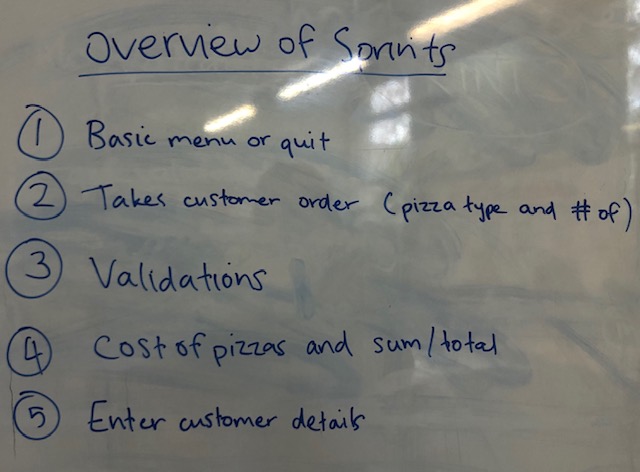 Overview of Sprints
1 Basic menu or quit
2 Takes customer order (pizza type and # of)
3 Validations
4 Cost of pizzas and sum/total
5 Enter customer details